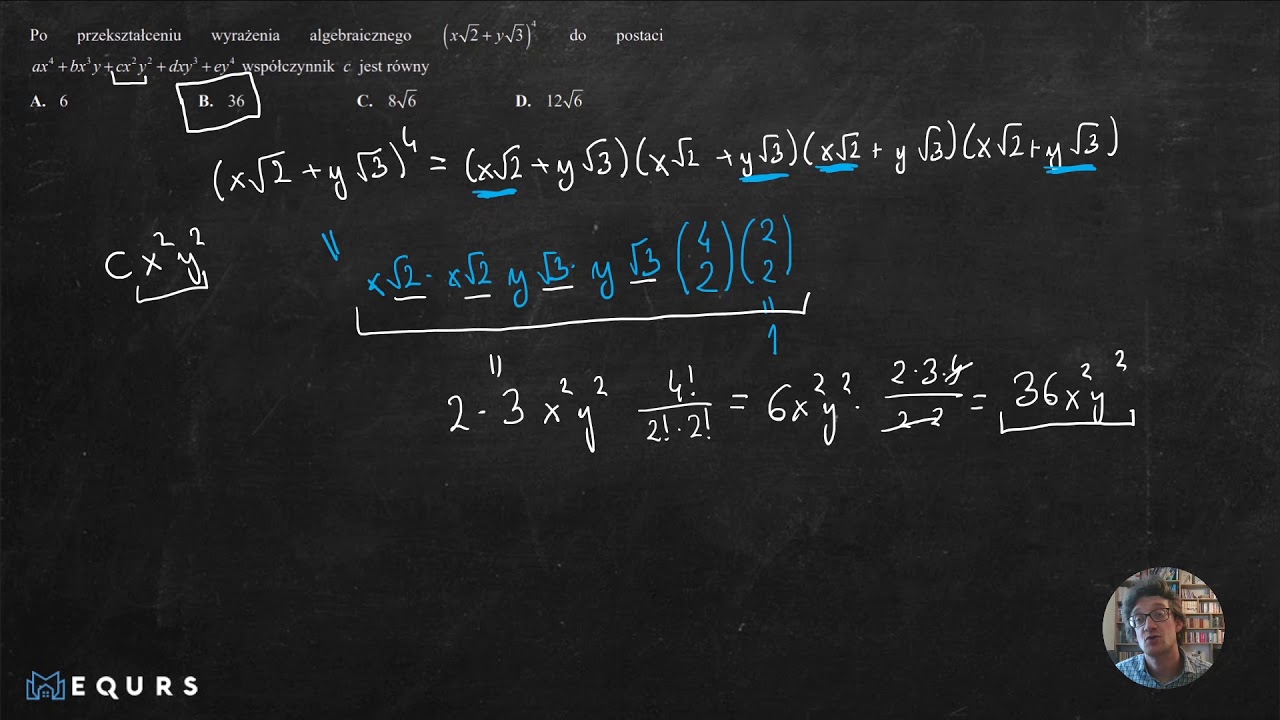 Po przekształceniu wyrażenia algebraicznego (x√2 + y√3)⁴ do postaci
ax⁴ + bx³y + cx²y² + dxy³ + ey⁴ współczynnik c jest równy
A. 6 B. 36 C. 8√6 D. 12√6
(x√2 + y√3)⁴ = (x√2 + y√3)(x√2 + y√3)(x√2 + y√3)(x√2 + y√3)
C x²y² || x√2 · x√2 y √3 · y √3 (4 2)(2 2)
|| 1
||
2 · 3 x²y² 4!/(2! · 2!) = 6x²y² · (2 · 3 · 4)/(2 · 2) = 36x²y²
EQURS